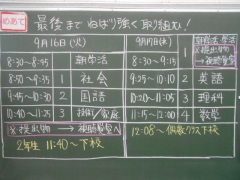 めあて 最後まで ねばり強く 取り組む!
9月16日(火)
8:30~8:45 朝学活
8:50~9:35 1 社会
9:45~10:30 2 国語
10:40~11:25 3 技術/家庭
※提出物 → 視聴覚室へ
2年生 11:40~下校
9月17日(水)
8:30~9:15 1 朝学活 学活
※提出物→視聴覚室
9:25~10:10 2 英語
10:20~11:05 3 理科
11:15~12:00 4 数学
12:08~ 偶数クラス下校